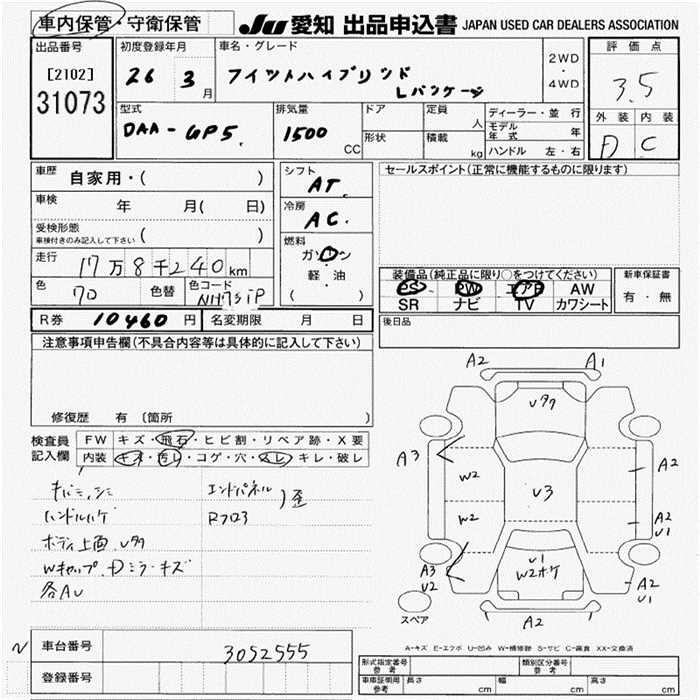 車内保管・守衛保管
JU 愛知 出品申込書 JAPAN USED CAR DEALERS ASSOCIATION
出品番号
[2102]
31073
初度登録年月
26 3月
車名・グレード
フィットハイブリッド
Lパッケージ
2WD
・
4WD
評価点
3.5
外装 内装
D C
型式
DAA-GP5.
排気量
1500 CC
ドア
形状
定員 人
積載 kg
ディーラー・並行
モデル年式 年
ハンドル 左・右
車歴 自家用・( )
車検 年 月( 日)
受検形態
車検付きのみ記入して下さい ( )
走行 17万8千240km
色 70 色替 色コード NH731P
シフト
AT.
冷房
AC.
燃料
ガソリン
軽・油
( )
セールスポイント(正常に機能するものに限ります)
装備品(純正品に限り○をつけてください)
PS PW エアB AW
SR ナビ TV カワシート
新車保証書
有・無
R券 10460円 名変期限 月 日
後日品
注意事項申告欄(不具合内容等は具体的に記入して下さい)
修復歴 有 〔箇所 〕
検査員記入欄
FW キズ・飛石・ヒビ割・リペア跡・X要
内装 キズ・汚レ・コゲ・穴・スレ・キレ・破レ
ハンドルハゲ
ボディ上面.Uタタ
Wキャップ.Dミラーキズ
各AU
エンドパネル
Rフロア
歪
A2 A1
Uタタ
A3
W2
W2
U3
A2
A2
U1
U1
W2ボケ
A3
U2
A2
U1
スペア
A2
A-キズ E-エクボ U-凹み W-補修跡 S-サビ C-腐食 XX-交換済
車台番号 3052555
登録番号
形式指定番号 参考
類別区分番号 参考
車庫証明用 参考 長さ cm 幅 cm 高さ cm